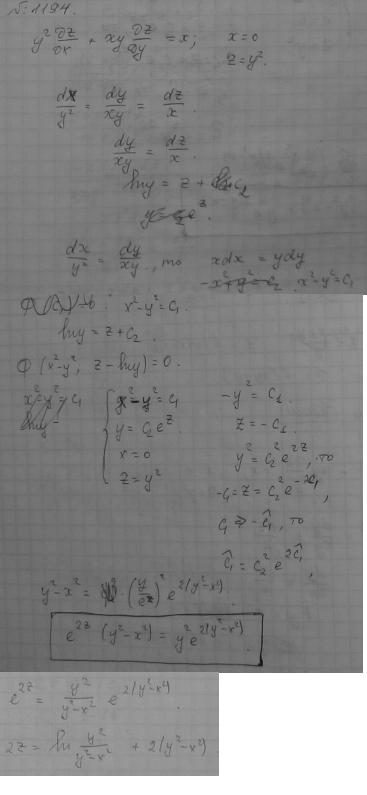 №1194.
y² ∂z/∂x + xy ∂z/∂y = x; x=0
z=y².
dx/y² = dy/xy = dz/x.
dy/xy = dz/x.
lny = z + c₂
dx/y² = dy/xy, то xdx = ydy
-x²+y² = c₂. x²-y²=c₁
x²-y²=c₁.
lny = z+c₂.
Ф (x²-y², z-lny)=0.
x²-y²=c₁ x²-y²=c₁ -y² = c₁.
lny = y= c₂e^z. z = -c₁.
x=0 y²=c₂²e^{2z}, то
z=y² -c₁=z=c₂²e^{-2c₁},
c₁ → -ĉ₁, то
ĉ₁=c₂²e^{2ĉ₁},
y²-x² = (y/e^z)² e^{2(y²-x²)}.
e^{2z} (y²-x²) = y²e^{2(y²-x²)}.
e^{2z} = y²/(y²-x²) e^{2(y²-x²)}.
2z = ln y²/(y²-x²) + 2(y²-x²).